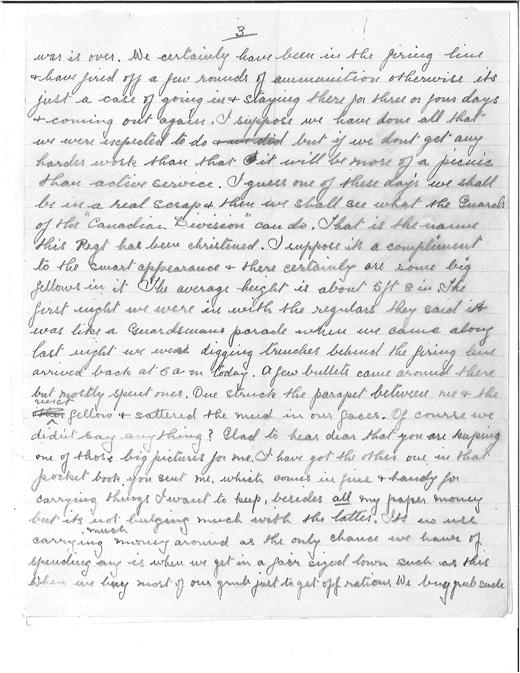 3
war is over. We certainly have been in the firing line
& have fired off a few rounds of ammunition otherwise its
just a case of going in & staying there for three or four days
& coming out again. I suppose we have done all that
we were expected to do & we did but if we dont get any
harder work than that it will be more of a picnic
than active service. I guess one of these days we shall
be in a real scrap & then we shall see what the Guards
of the "Canadian Division" can do. That is the name
this Regt has been christened. I suppose its a compliment
to the smart appearance & there certainly are some big
fellows in it The average height is about 5ft 8 in. The
first night we were in with the regulars they said it
was like a Guardsmans parade when we came along
last night we were digging trenches behind the firing line
arrived back at 5 a m today. A few bullets came around there
but mostly spent ones. One struck the parapet between me & the
next
other fellow & sattered the mud in our faces. Of course we
didn't say anything? Glad to hear dear that you are keeping
one of those big pictures for me. I have got the other one in that
pocket book you sent me, which comes in fine & handy for
carrying things I want to keep, besides all my paper money
but its not bulging much with the latter. Its no use
much
carrying money around as the only chance we have of
spending any is when we get in a fair sized town such as this
When we buy most of our grub just to get off rations We buy grub such